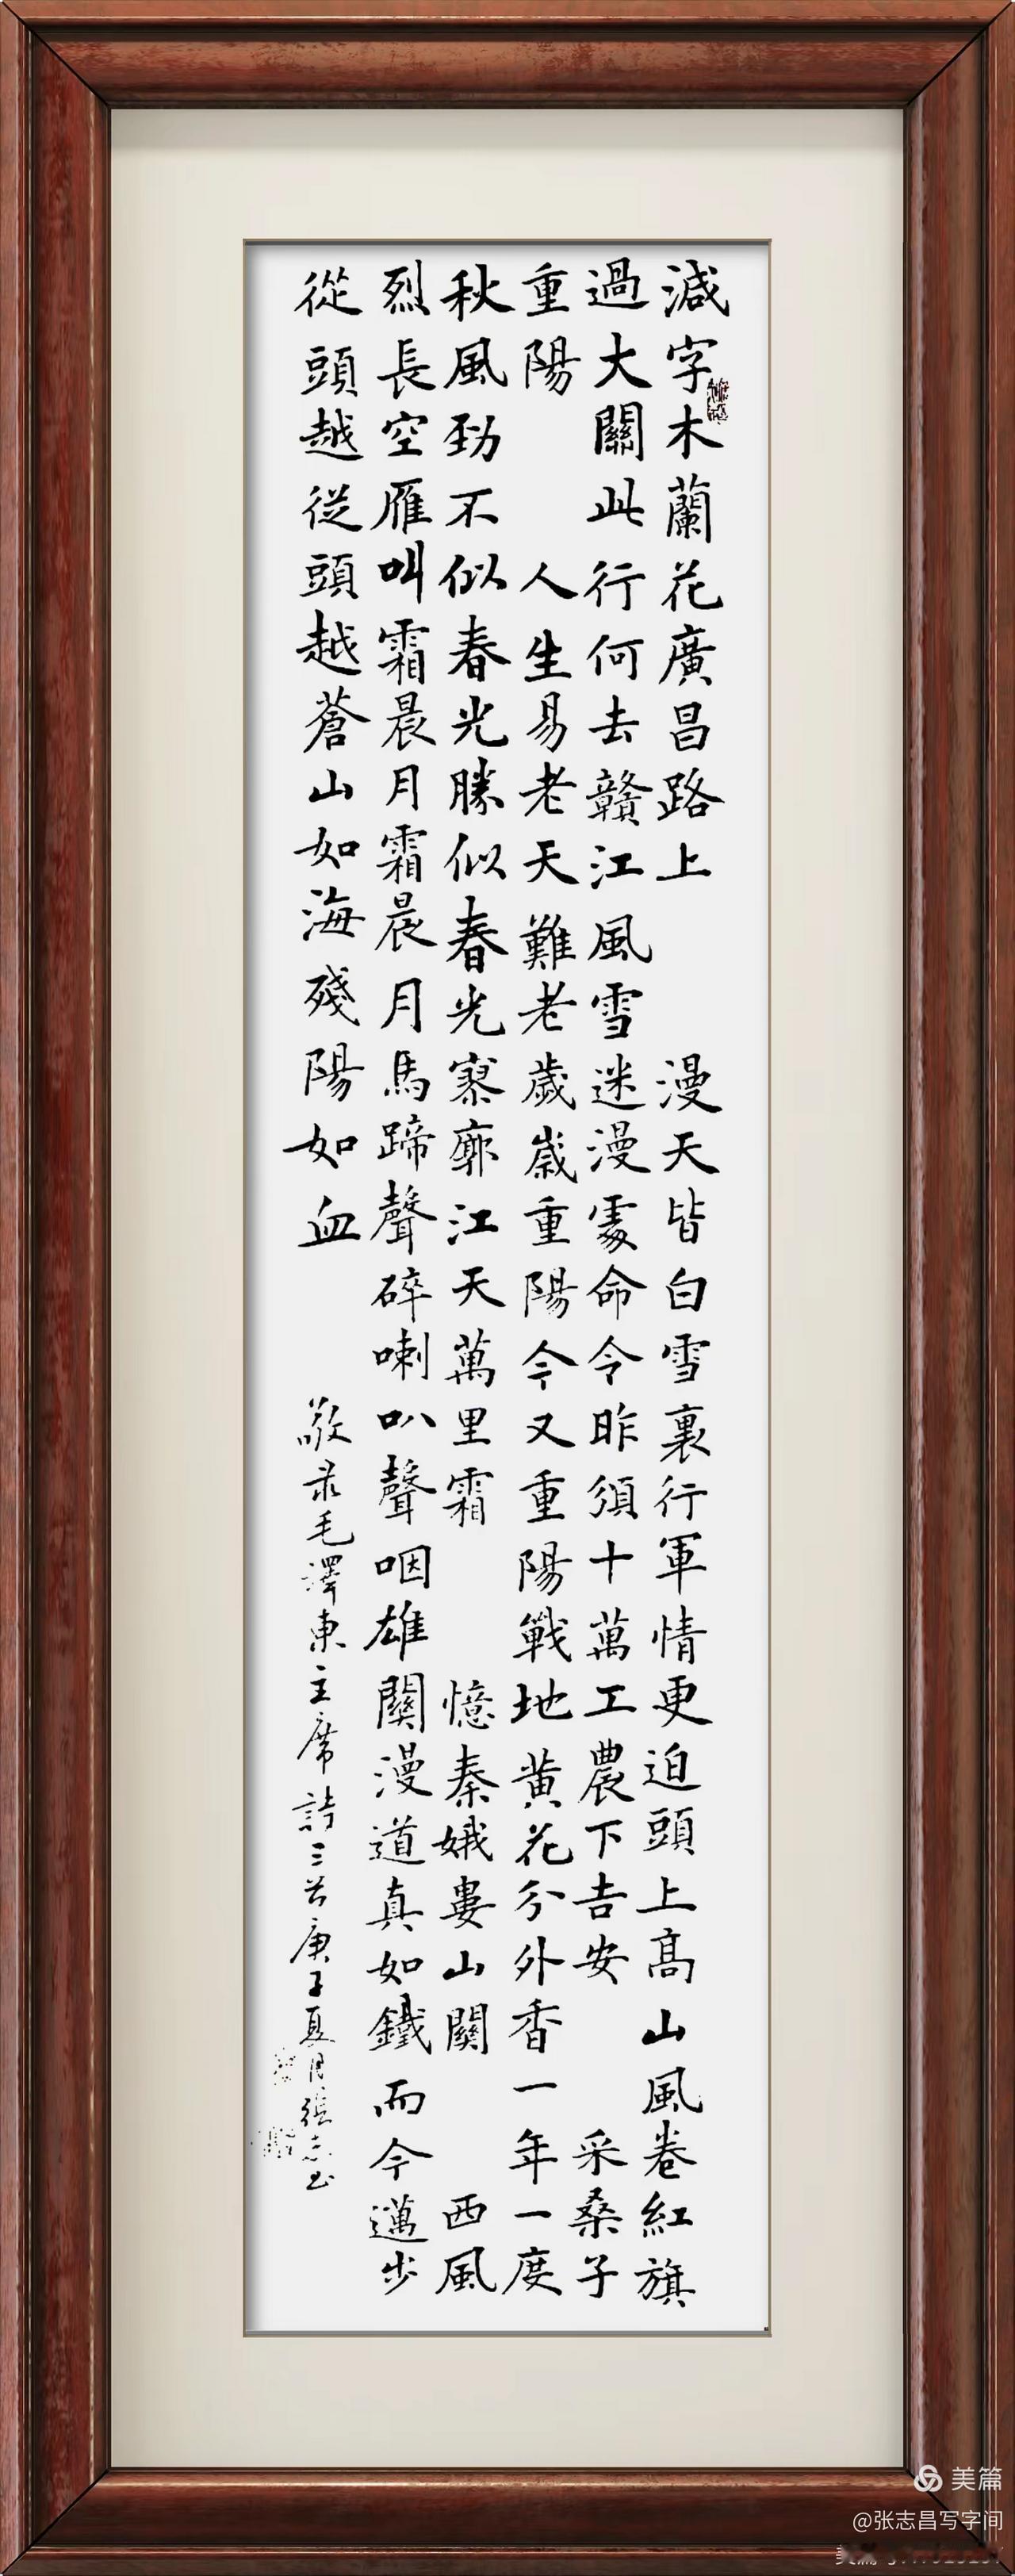 減字木蘭花廣昌路上 漫天皆白雪裏行軍情更迫頭上高山風卷紅旗
過大關此行何去贛江風雪迷漫處命令昨須十萬工農下吉安 采桑子
重陽 人生易老天難老歲歲重陽今又重陽戰地黃花分外香一年一度
秋風勁不似春光勝似春光寥廓江天萬里霜 憶秦娥婁山關 西風
烈長空雁叫霜晨月霜晨月馬蹄聲碎喇叭聲咽雄關漫道真如鐵而今邁步
從頭越從頭越蒼山如海殘陽如血
敬录毛澤東主席詩三首庚子夏月張志書
美篇
@张志昌写字间